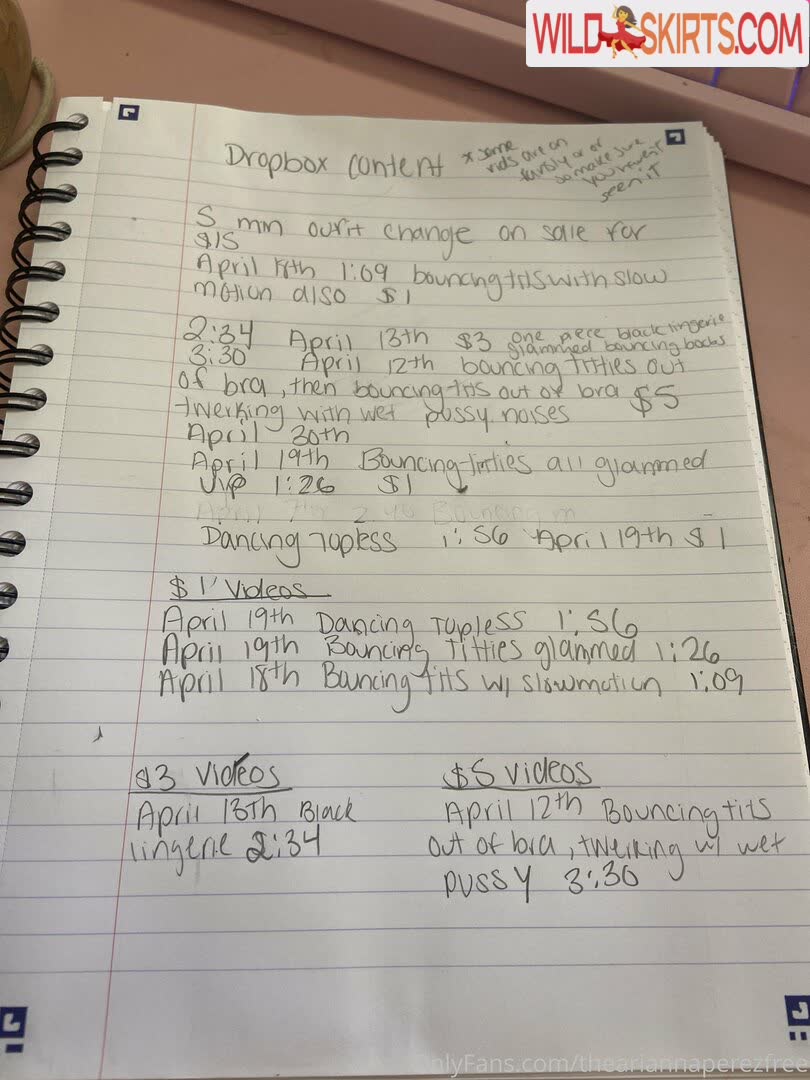 WILDSKIRTS.COM
Dropbox content
* some
vids are on
fansly or of
so make sure
you haven't
seen it
5 min outfit change on sale for
$15
April 18th 1:09 bouncing tits with slow
motion also $1
2:34 April 13th $3 one piece black lingerie
glammed bouncing boobs
3:30 April 12th bouncing titties out
of bra, then bouncing tits out of bra $5
twerking with wet pussy noises
April 30th
April 19th Bouncing titties all glammed
up 1:26 $1
April 7th 2:46 Bouncing
Dancing Topless 1:56 April 19th $1
$1 Videos
April 19th Dancing Topless 1:56
April 19th Bouncing titties glammed 1:26
April 18th Bouncing tits w/ slowmotion 1:09
$3 Videos
April 13th Black
lingerie 2:34
$5 videos
April 12th Bouncing tits
out of bra, twerking w/ wet
pussy 3:30
OnlyFans.com/theariannaperezfree